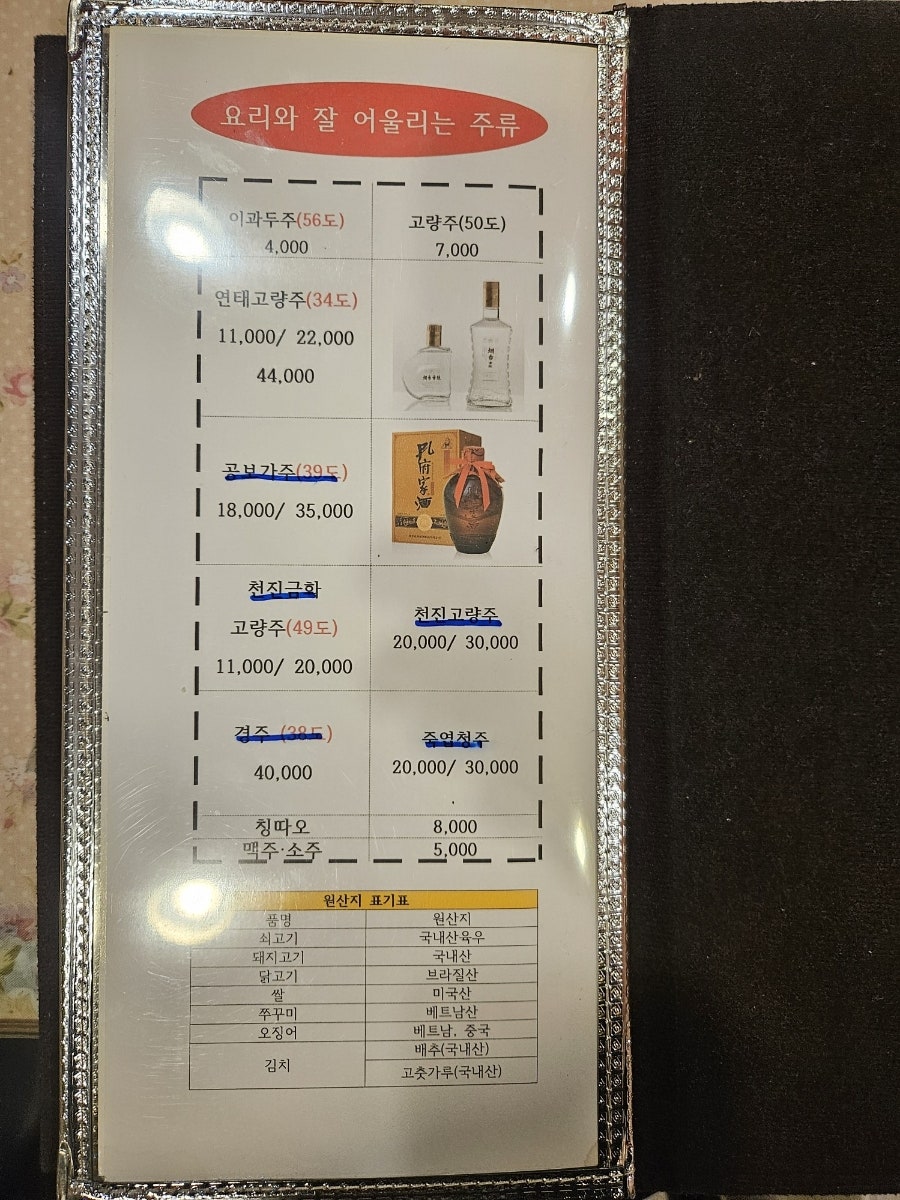 요리와 잘 어울리는 주류
이과두주(56도)
4,000
고량주(50도)
7,000
연태고량주(34도)
11,000/ 22,000
44,000
공보가주(39도)
18,000/ 35,000
孔府家酒
천진금화
고량주(49도)
11,000/ 20,000
천진고량주
20,000/ 30,000
경주 (38도)
40,000
죽엽청주
20,000/ 30,000
칭따오 8,000
맥주·소주 5,000
원산지 표기표
품명 원산지
쇠고기 국내산육우
돼지고기 국내산
닭고기 브라질산
쌀 미국산
쭈꾸미 베트남산
오징어 베트남, 중국
김치 배추(국내산)
고춧가루(국내산)